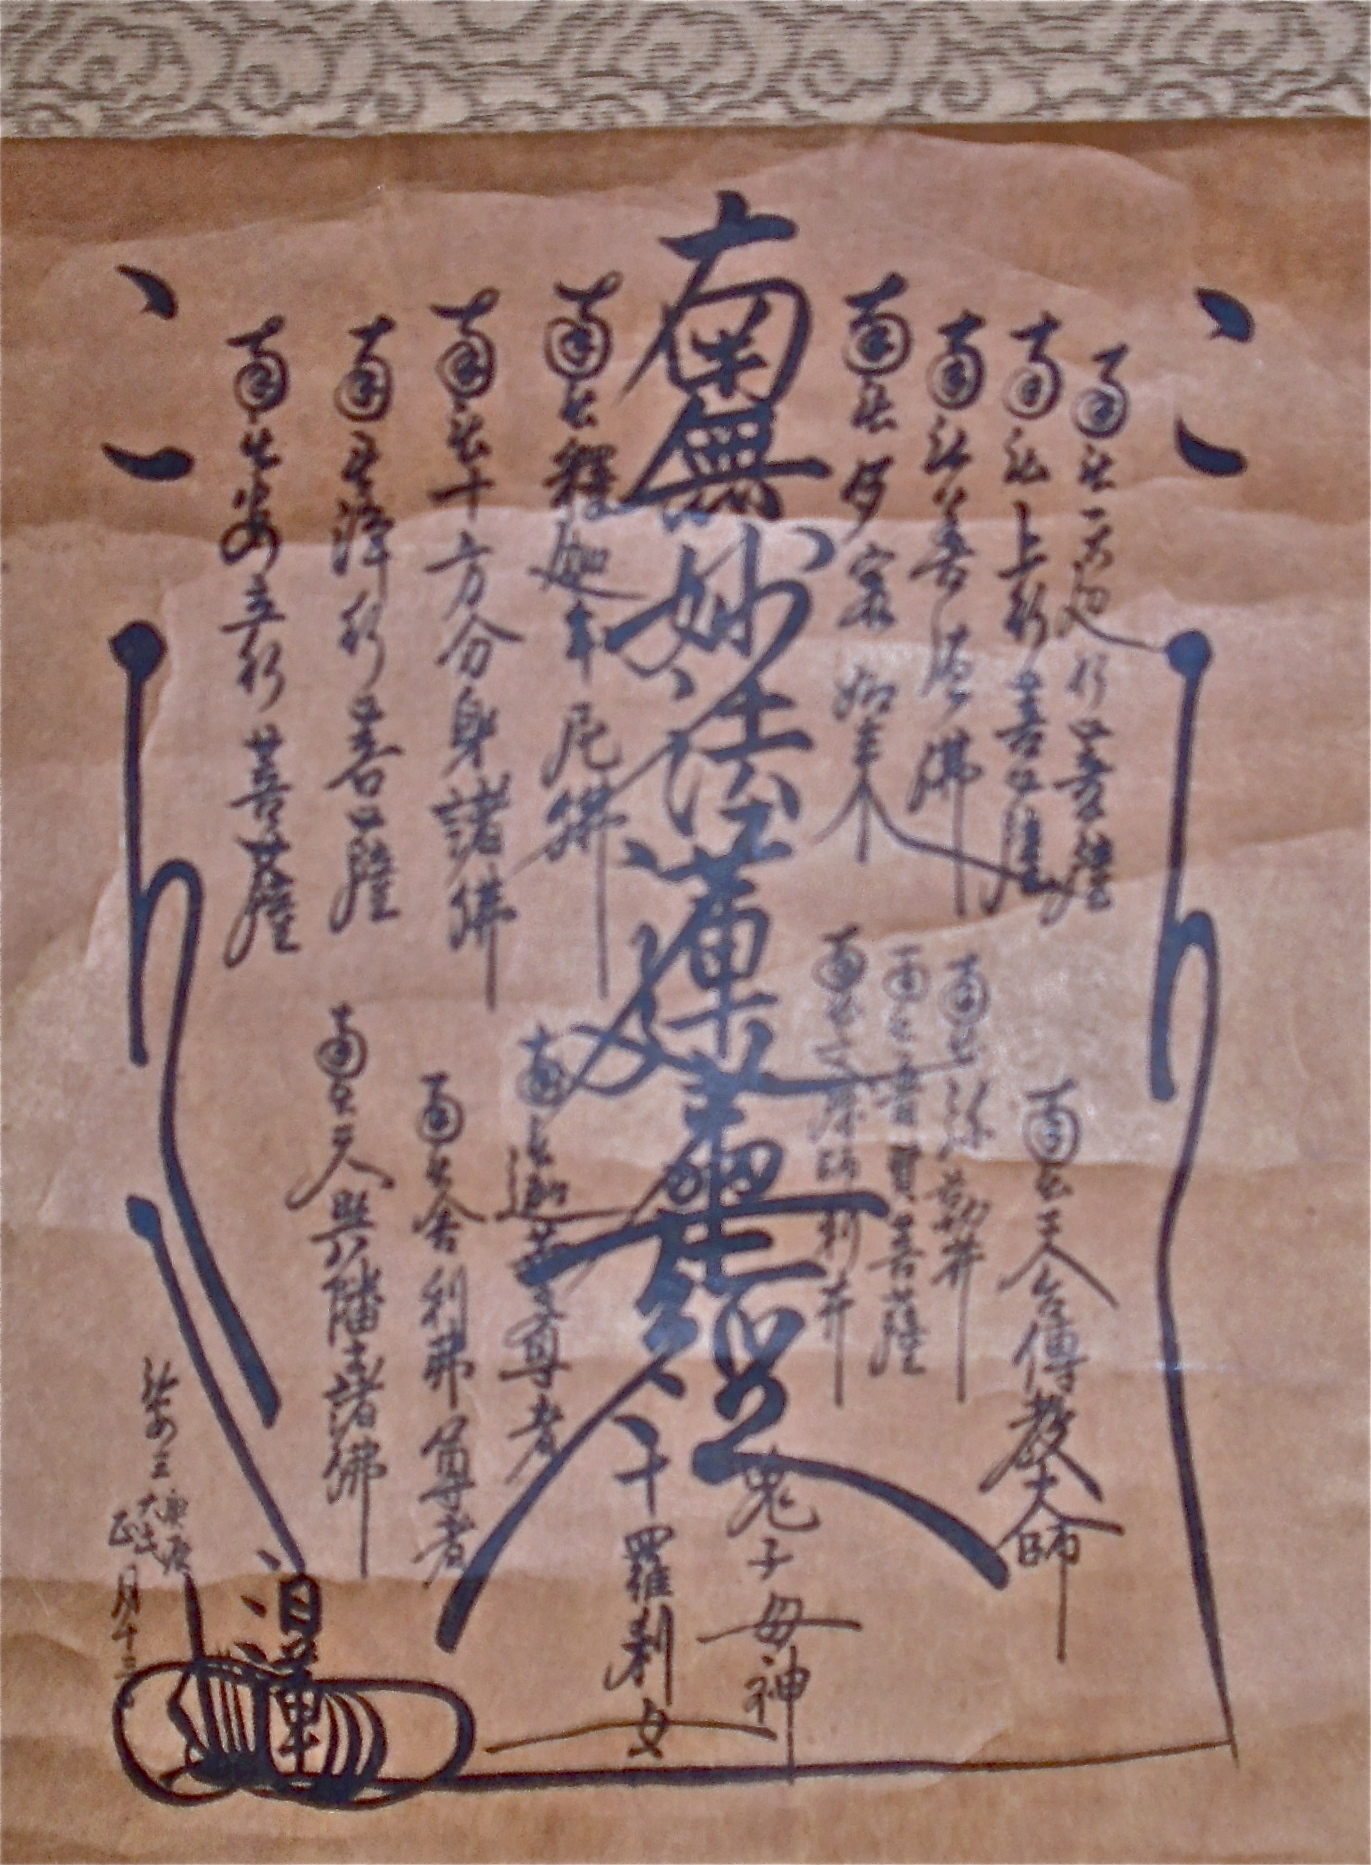 南無無邊行菩薩
南無上行菩薩
南無善德佛
南無多寳如来
南無妙法蓮華經
南無釋迦牟尼佛
南無十方分身諸佛
南無淨行菩薩
南無安立行菩薩
南無天台傳教大師
南無弥勒井
南無普賢菩薩
南無文殊師利井
鬼子母神
十羅刹女
南無迦葉尊者
南無舎利弗尊者
日蓮
正月十三